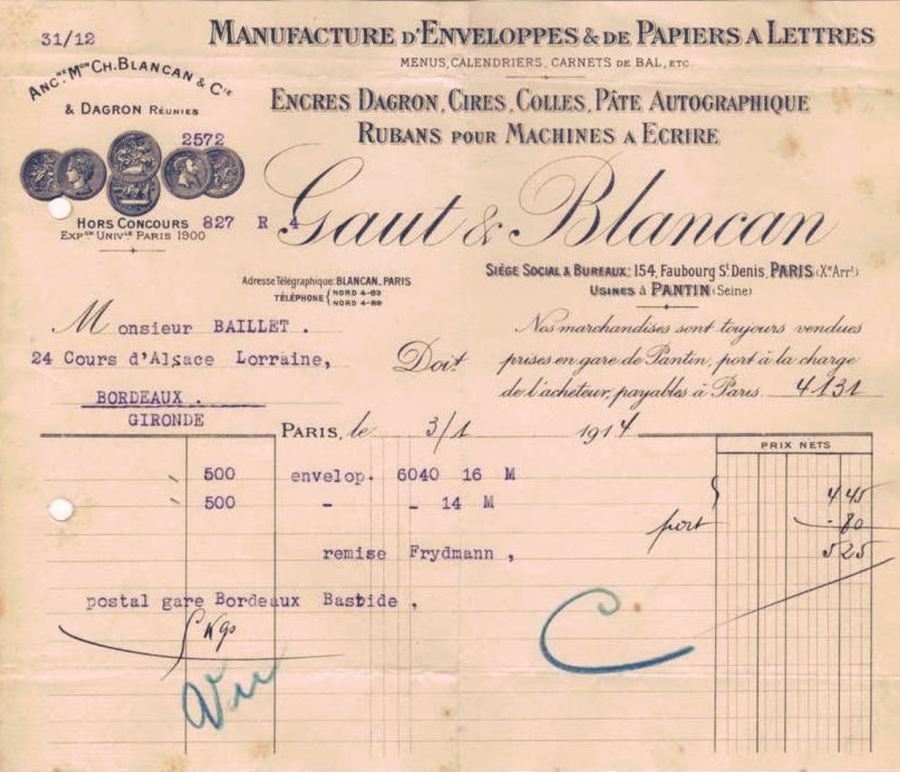 31/12
MANUFACTURE D'ENVELOPPES & DE PAPIERS A LETTRES
MENUS, CALENDRIERS, CARNETS DE BAL, ETC
ANC.NE M.ON CH. BLANCAN & CIE
& DAGRON RÉUNIES
ENCRES DAGRON, CIRES, COLLES, PÂTE AUTOGRAPHIQUE
RUBANS POUR MACHINES A ECRIRE
2572
HORS CONCOURS 827 R 4
EXP.ON UNIV.LE PARIS 1900
Gaut & Blancan
SIÈGE SOCIAL & BUREAUX: 154, Faubourg St Denis, PARIS (Xe Arrt)
USINES à PANTIN (Seine)
Adresse Télégraphique: BLANCAN_PARIS
TÉLÉPHONE { NORD 4-83
NORD 4-89
Monsieur BAILLET .
24 Cours d'Alsace Lorraine,
BORDEAUX .
GIRONDE
Doit
Nos marchandises sont toujours vendues
prises en gare de Pantin, port à la charge
de l'acheteur, payables à Paris. 4131
PARIS, le 3/1 1914
PRIX NETS
500 envelop. 6040 16 M
500 - - 14 M
4 45
port - 80
5 25
remise Frydmann ,
postal gare Bordeaux Bastide ,
5 Kgs
C
Vu